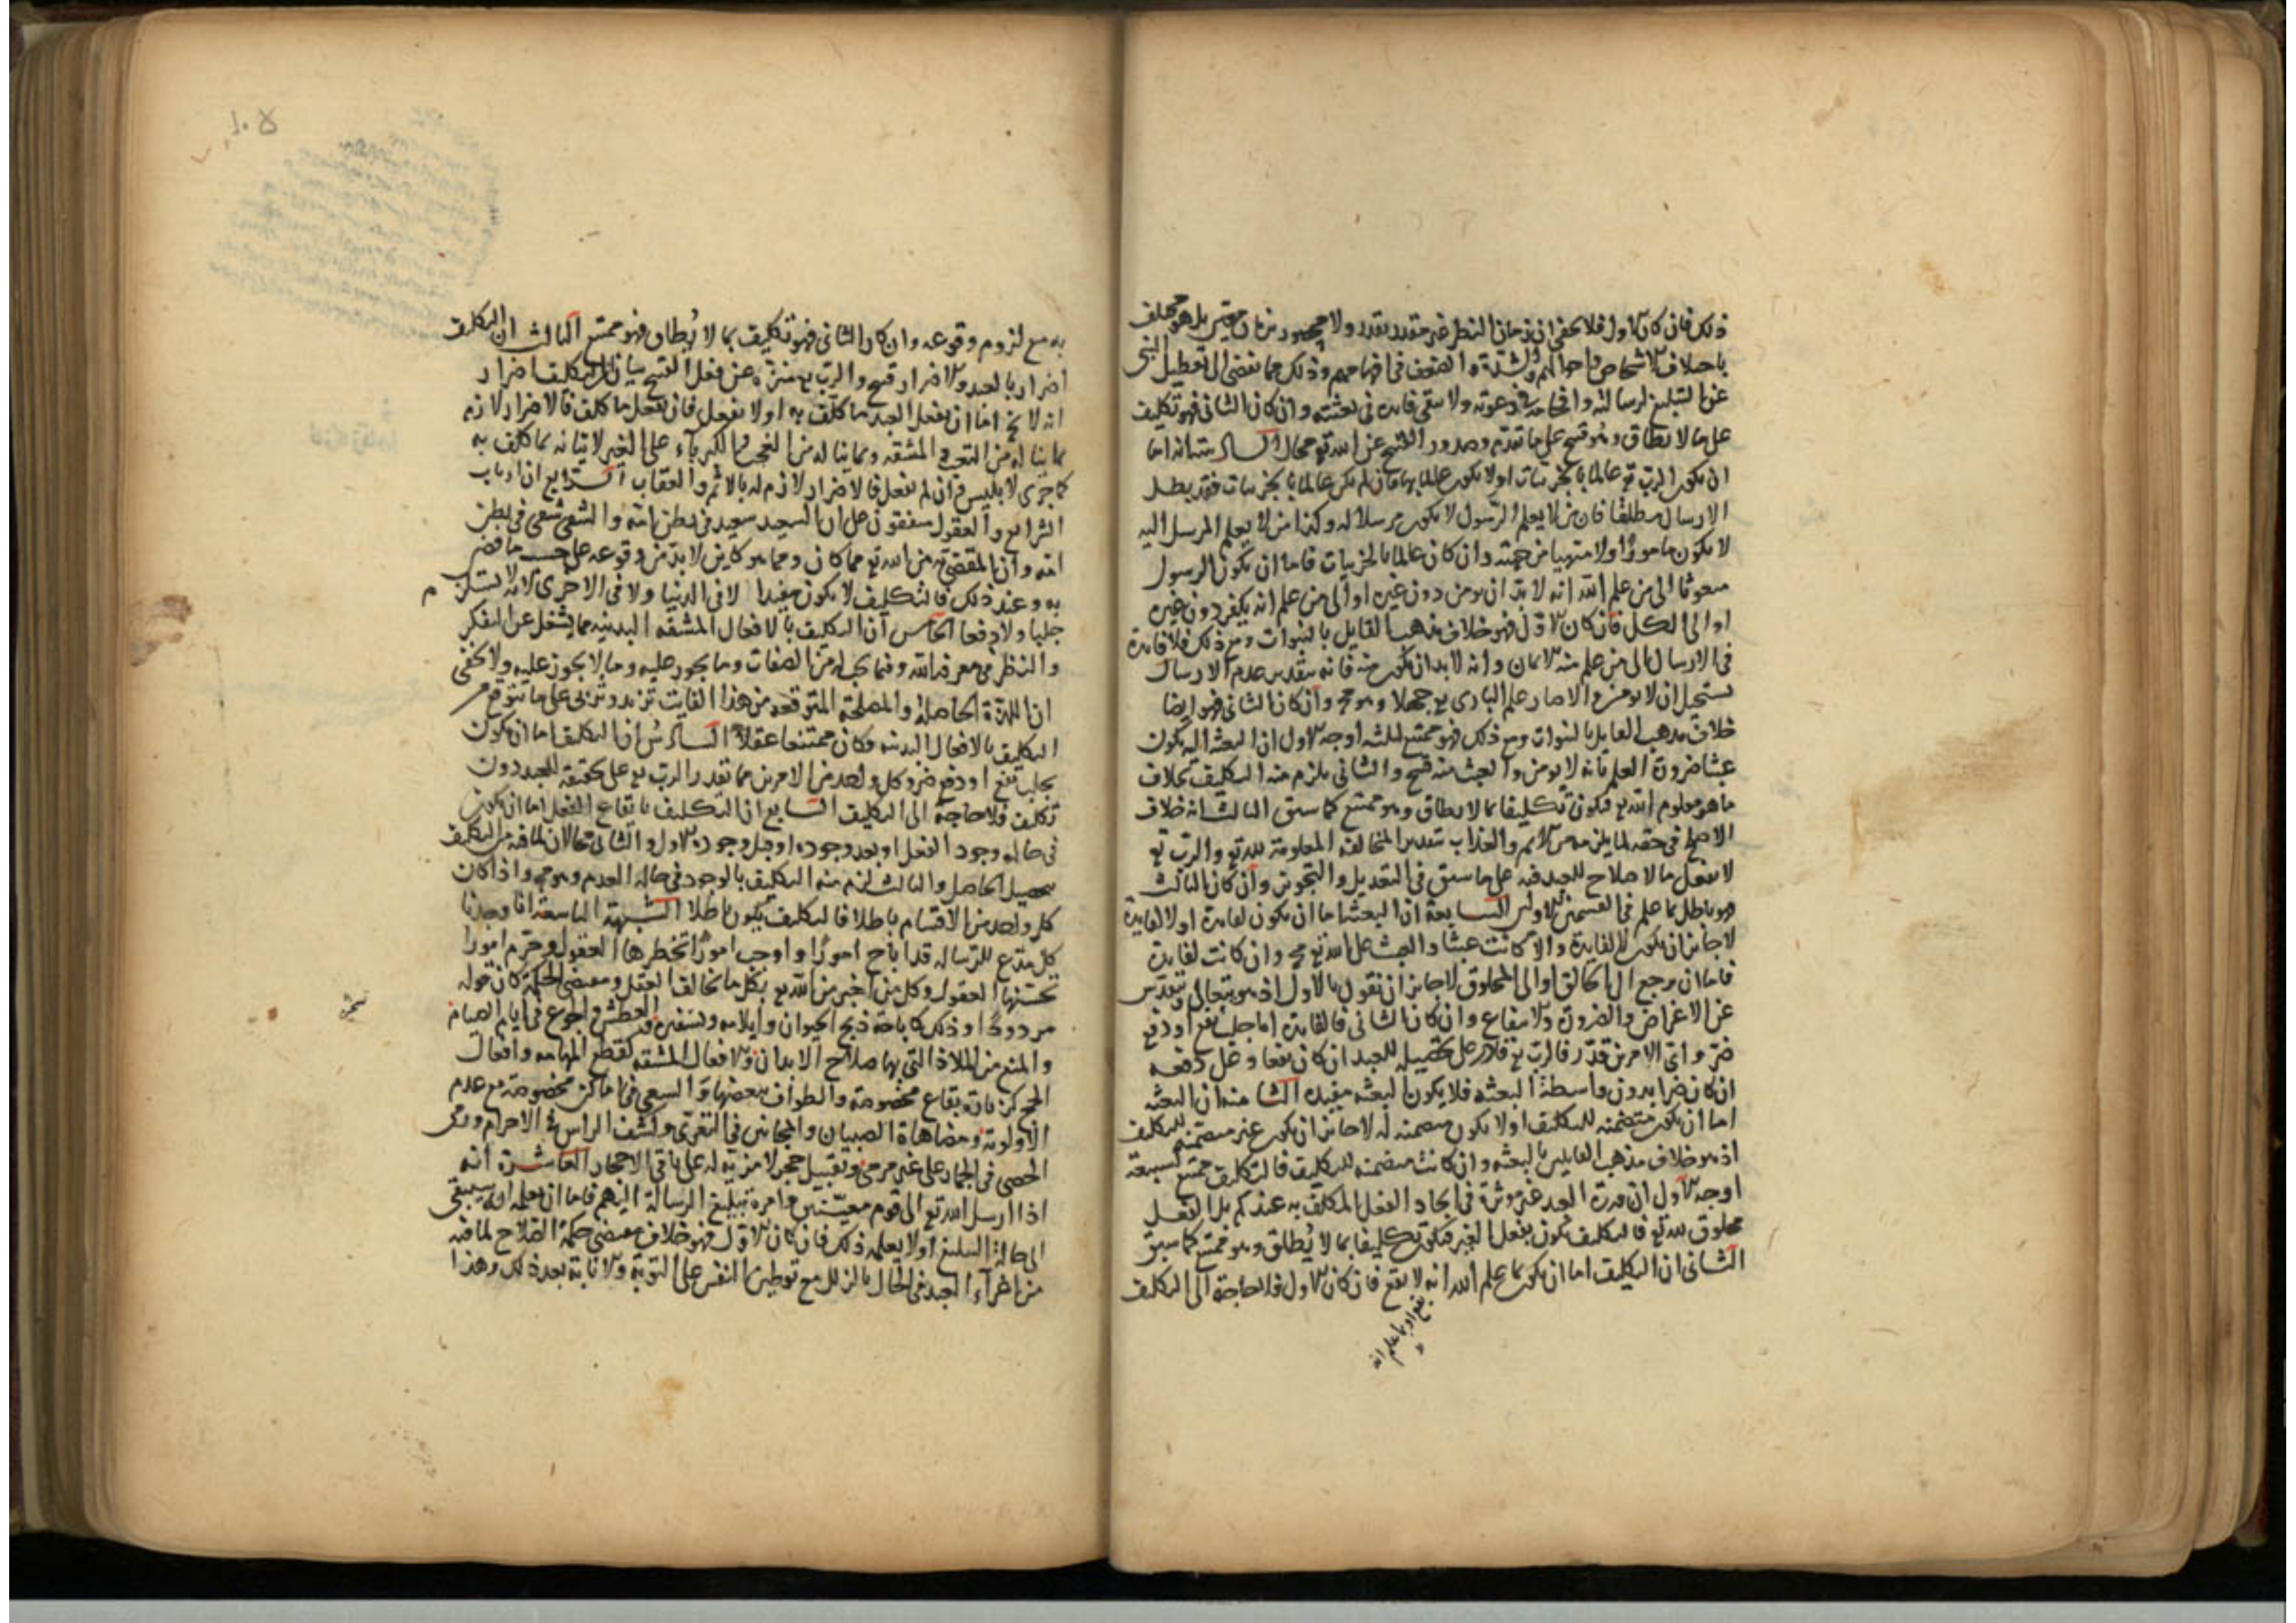 ذلك فان كان الاول فلا يخفى ان زمان النظر غير مقدر بقدر ولا محصور بزمان معين بل هو مختلف
باختلاف الاشخاص واحوالهم والشدة والضعف فى افهامهم وذلك مما يفضى الى تعطيل النبى
عن التبليغ لرسالته وافحامه فى دعوته ولا يبقى فايده فى بعثته وان كان الثانى فهو تكليف
على ما لا يطاق وهو قبيح على ما تقدم وصدور القبيح عن الله تع محال السادسة انه اما
ان يكون الرب تع عالما بالجزئيات او لا يكون عالما بها فان لم يكن عالما بالجزئيات فقد بطل
الارسال مطلقا فان من لا يعلم الرسول لا يكون مرسلا له وكذا من لا يعلم المرسل اليه
لا يكون مامورا ولا منتهيا من جهته وان كان عالما بالجزئيات فاما ان يكون الرسول
مبعوثا الى من علم الله انه لا بد ان يومن دون غيره او الى من علم انه يكفر دون غيره
او الى الكل فان كان الاول فهو خلاف مذهب القايل بالنبوات ومع ذلك فلا فايدة
فى الارسال الى من علم منه الايمان وانه لا بد ان يكون منه فانه بتقدير عدم الارسال
يستحيل ان لا يومن والا صار علم البارى تع جهلا وهو مح وان كان الثانى فهو ايضا
خلاف مذهب القايل بالنبوات ومع ذلك فهو ممتنع لثلثه اوجه الاول ان البعثه اليه يكون
عبثا ضرورة العلم بانه لا يومن والعبث منه قبيح والثانى يلزم منه التكليف بخلاف
ما هو معلوم الله تع فيكون تكليفا بما لا يطاق وهو ممتنع كما سبق الثالث انه خلاف
الاصلح فى حقه لما يلزمه من الاثم والعذاب بتقدير المخالفة المعلومة لله تع والرب تع
لا يفعل ما لا صلاح للعبد فيه على ما سبق فى التعديل والتجوير وان كان الثالث
فهو باطل بما علم فى القسمين الاولين السابعة ان البعثه اما ان يكون لفايدة او لا لفايدة
لا جايز ان يكون لا لفايدة والا كانت عبثا والعبث على الله تع مح وان كانت لفايدة
فاما ان يرجع الى الخالق او الى المخلوق لا جايز ان نقول بالاول اذ هو يتعالى ويتقدس
عن الاغراض والضرر والانتفاع وان كان الثانى فالفايدة اما جلب نفع او دفع
ضر واى الامرين قدر فالرب تع قادر على تحصيله للعبد ان كان نفعا وعلى دفعه
ان كان ضرا بدون واسطة البعثه فلا يكون البعثه مفيده الثامنه ان البعثه
اما ان يكون متضمنه للتكليف او لا يكون متضمنه له لا جايز ان يكون غير متضمنه للتكليف
اذ هو خلاف مذهب القايلين بالبعثه وان كانت متضمنه للتكليف فالتكليف ممتنع لسبعة
اوجه الاول ان قدرة العبد غير موثرة فى ايجاد الفعل المكلف به عندكم بل الفعل
مخلوق لله تع فالتكليف يكون بفعل الغير فيكون تكليفا بما لا يطاق وهو ممتنع كما سبق
الثانى ان التكليف اما ان يكون بما علم الله انه لا يقع فان كان الاول فلا حاجة الى التكليف
يقع او بما علم انه
به مع لزوم وقوعه وان كان الثانى فهو تكليف بما لا يطاق فهو ممتنع الثالث ان التكليف
اضرار بالعبد والاضرار قبيح والرب تع منزه عن فعل القبيح بيان ان التكليف اضرار
انه لا يخ اما ان يفعل العبد ما كلف به او لا يفعل فان فعل ما كلف فالاضرار لازم
بما يناله من التعب والمشقه وبما يناله من العجب والكبرياء على الغير لاتيانه بما كلف به
كما جرى لابليس وان لم يفعل فالاضرار لازم له بالاثم والعقاب الرابع ان ارباب
الشرايع والعقول متفقون على ان السعيد سعيد فى بطن امه والشقى شقى فى بطن
امه وان المقضى به من الله تع مما كان ومما هو كاين لا بد من وقوعه على حسب ما قضى
به وعند ذلك فالتكليف لا يكون مفيدا لا فى الدنيا ولا فى الاخرى لانه لا يستلزم
جلبا ولا دفعا الخامس ان التكليف بالافعال المشقه البدنيه مما يشغل عن التفكر
والنظر فى معرفة الله وفيما يجب له من الصفات وما يجوز عليه وما لا يجوز عليه ولا يخفى
ان اللذة الحاصلة والمصلحة المتوقعه من هذا الفايت تزيد وتربى على ما يتوقع من
التكليف بالافعال البدنيه فكان ممتنعا عقلا السادس ان التكليف اما ان يكون
بجلب نفع او دفع ضر وكل واحد من الامرين مما يقدر الرب تع على تحقيقه للعبد دون
تكليف فلا حاجة الى التكليف السابع ان التكليف بايقاع الفعل اما ان يكون
فى حالة وجود الفعل او بعد وجوده او قبل وجوده الاول والثانى محالان لما فيه من التكليف
بتحصيل الحاصل والثالث يلزم منه التكليف بالوجود فى حالة العدم وهو مح واذا كان
كل واحد من الاقسام باطلا فالتكليف يكون باطلا الشبهة التاسعة انا وجدنا
كل مدع للرساله قد اباح امورا واوجب امورا تحظرها العقول وحرم امورا
تحسنها العقول وكل من اخبر من الله تع بكل ما تخالف العقل ومقتضى الحكمة كان قوله
مردودا وذلك كاباحة ذبح الحيوان وايلامه وتسخيره والعطش والجوع فى ايام الصيام
والمنع من الملاذ التى بها صلاح الابدان والافعال المشقه كقطع المهامه وافعال
الحج كزيارة بقاع مخصوصة والطواف ببعضها والسعى فى اماكن مخصوصة مع عدم
الاولوية ومضاهاة الصبيان والمجانين فى التعرى وكشف الراس فى الاحرام ورمى
الحصى فى الجمار على غير مرمى وتقبيل حجر لا مزية له على باقى الاحجار العاشرة انه
اذا ارسل الله تع الى قوم معينين وامره بتبليغ الرسالة اليهم فاما ان يعلمه انه سيبقى
الى حالة التبليغ او لا يعلمه ذلك فان كان الاول فهو خلاف مقتضى حكمة الصلاح لما فيه
من اغراء العبد فى الحال بالزلل مع توطين النفس على التوبة والانابة بعد ذلك وهذا